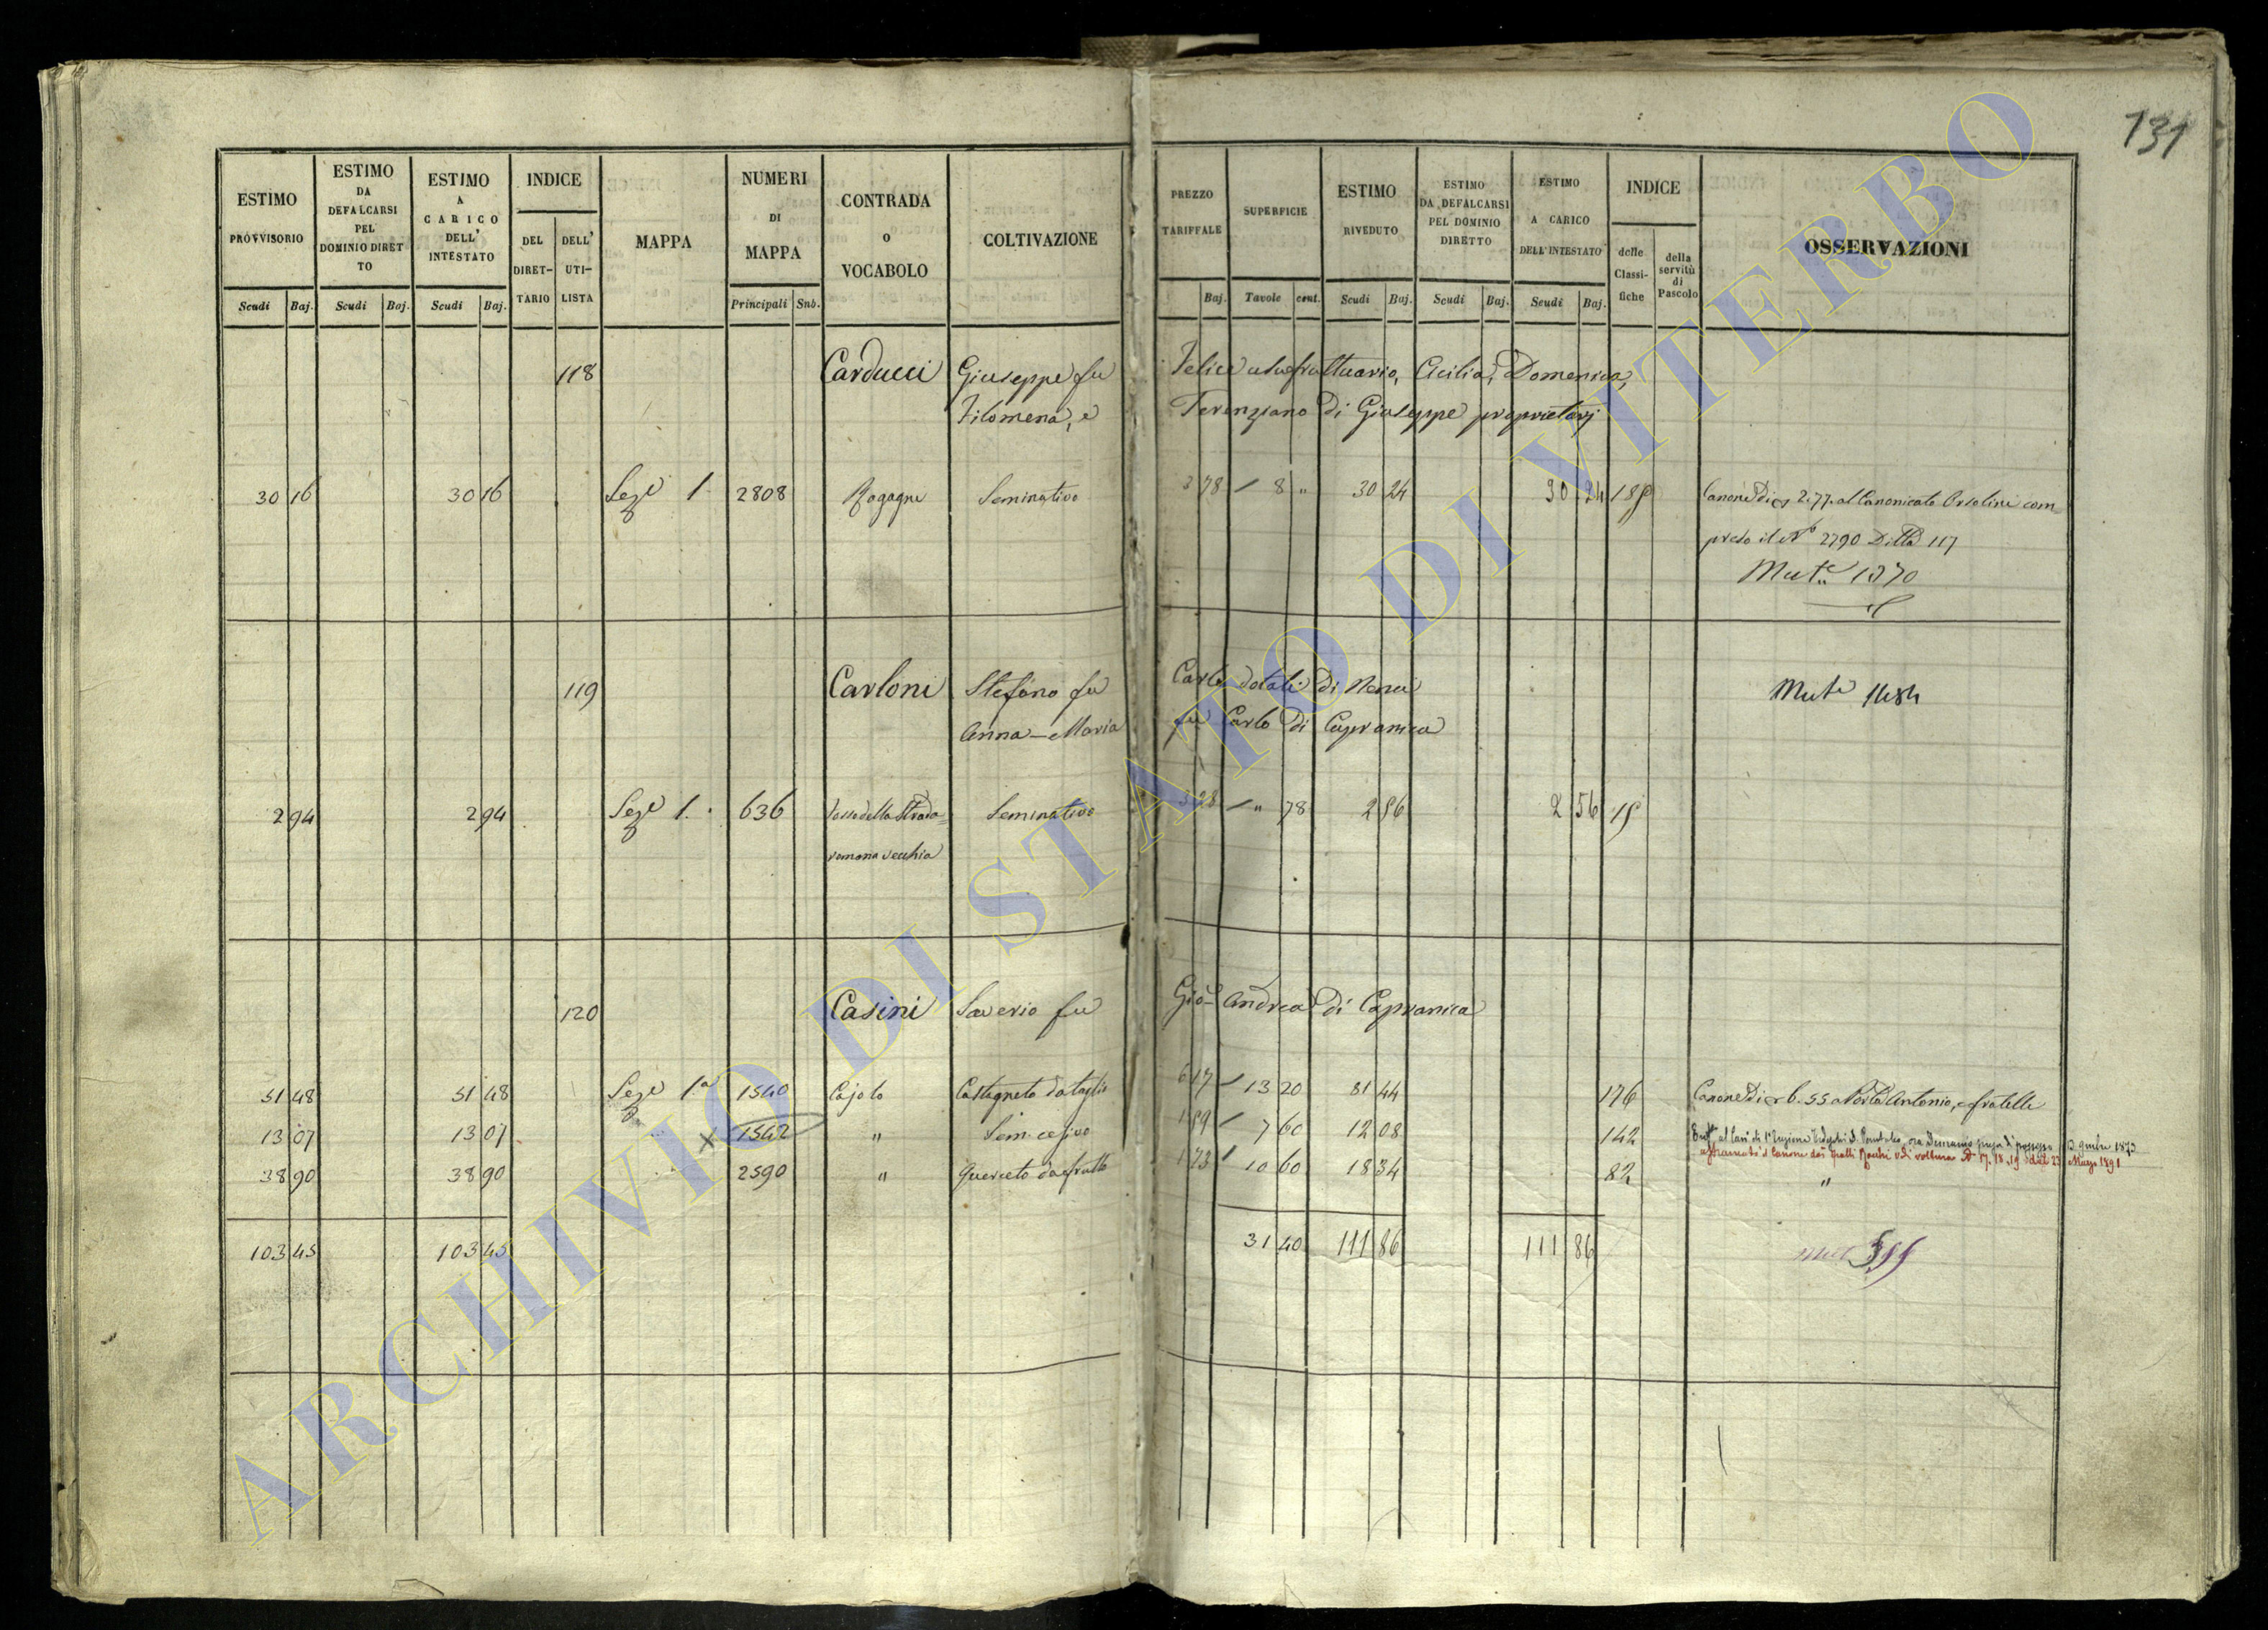 131
ESTIMO PROVVISORIO | ESTIMO DA DEFALCARSI PEL DOMINIO DIRETTO | ESTIMO A CARICO DELL' INTESTATO | INDICE | MAPPA | NUMERI DI MAPPA | CONTRADA O VOCABOLO | COLTIVAZIONE | PREZZO TARIFFALE | SUPERFICIE | ESTIMO RIVEDUTO | ESTIMO DA DEFALCARSI PEL DOMINIO DIRETTO | ESTIMO A CARICO DELL' INTESTATO | INDICE | OSSERVAZIONI
DEL DIRETTARIO | DELL' UTILISTA | delle Classifiche | della servitù di Pascolo
Scudi | Baj. | Scudi | Baj. | Scudi | Baj. | Principali | Sub. | Baj. | Tavole | cent. | Scudi | Baj. | Scudi | Baj. | Scudi | Baj.
118 Carducci Giuseppe fu Felice usufruttuario, Cicilia, Domenica,
Filomena, e Terenziano di Giuseppe proprietarj
30 16 30 16 Seze 1. 2808 Seminativo 3 78 8 " 30 24 30 24 Canone di 2.77. al Canonicato Orsolini com=
preso il No 2790 Ditta 117
Mute 1870
119 Carloni Stefano fu Carlo dotali di
Anna-Maria fu Carlo di Capranica
2 94 2 94 Seze 1. 636 della Strada Seminativo 3 28 " 78 2 56 2 56
romana vecchia
120 Casini Saverio fu Gio Andrea di Capranica
51 48 51 48 Seze 1a 1540 Cajolo Castagneto da taglio 6 17 13 20 81 44 176 Antonio, e fratelli
13 07 13 07 1542 " 1 59 7 60 12 08 142
38 90 38 90 2590 " Querceto da frutto 1 73 10 60 18 34 82 "
103 45 103 45 31 40 111 86 111 86
ARCHIVIO DI STATO DI VITERBO